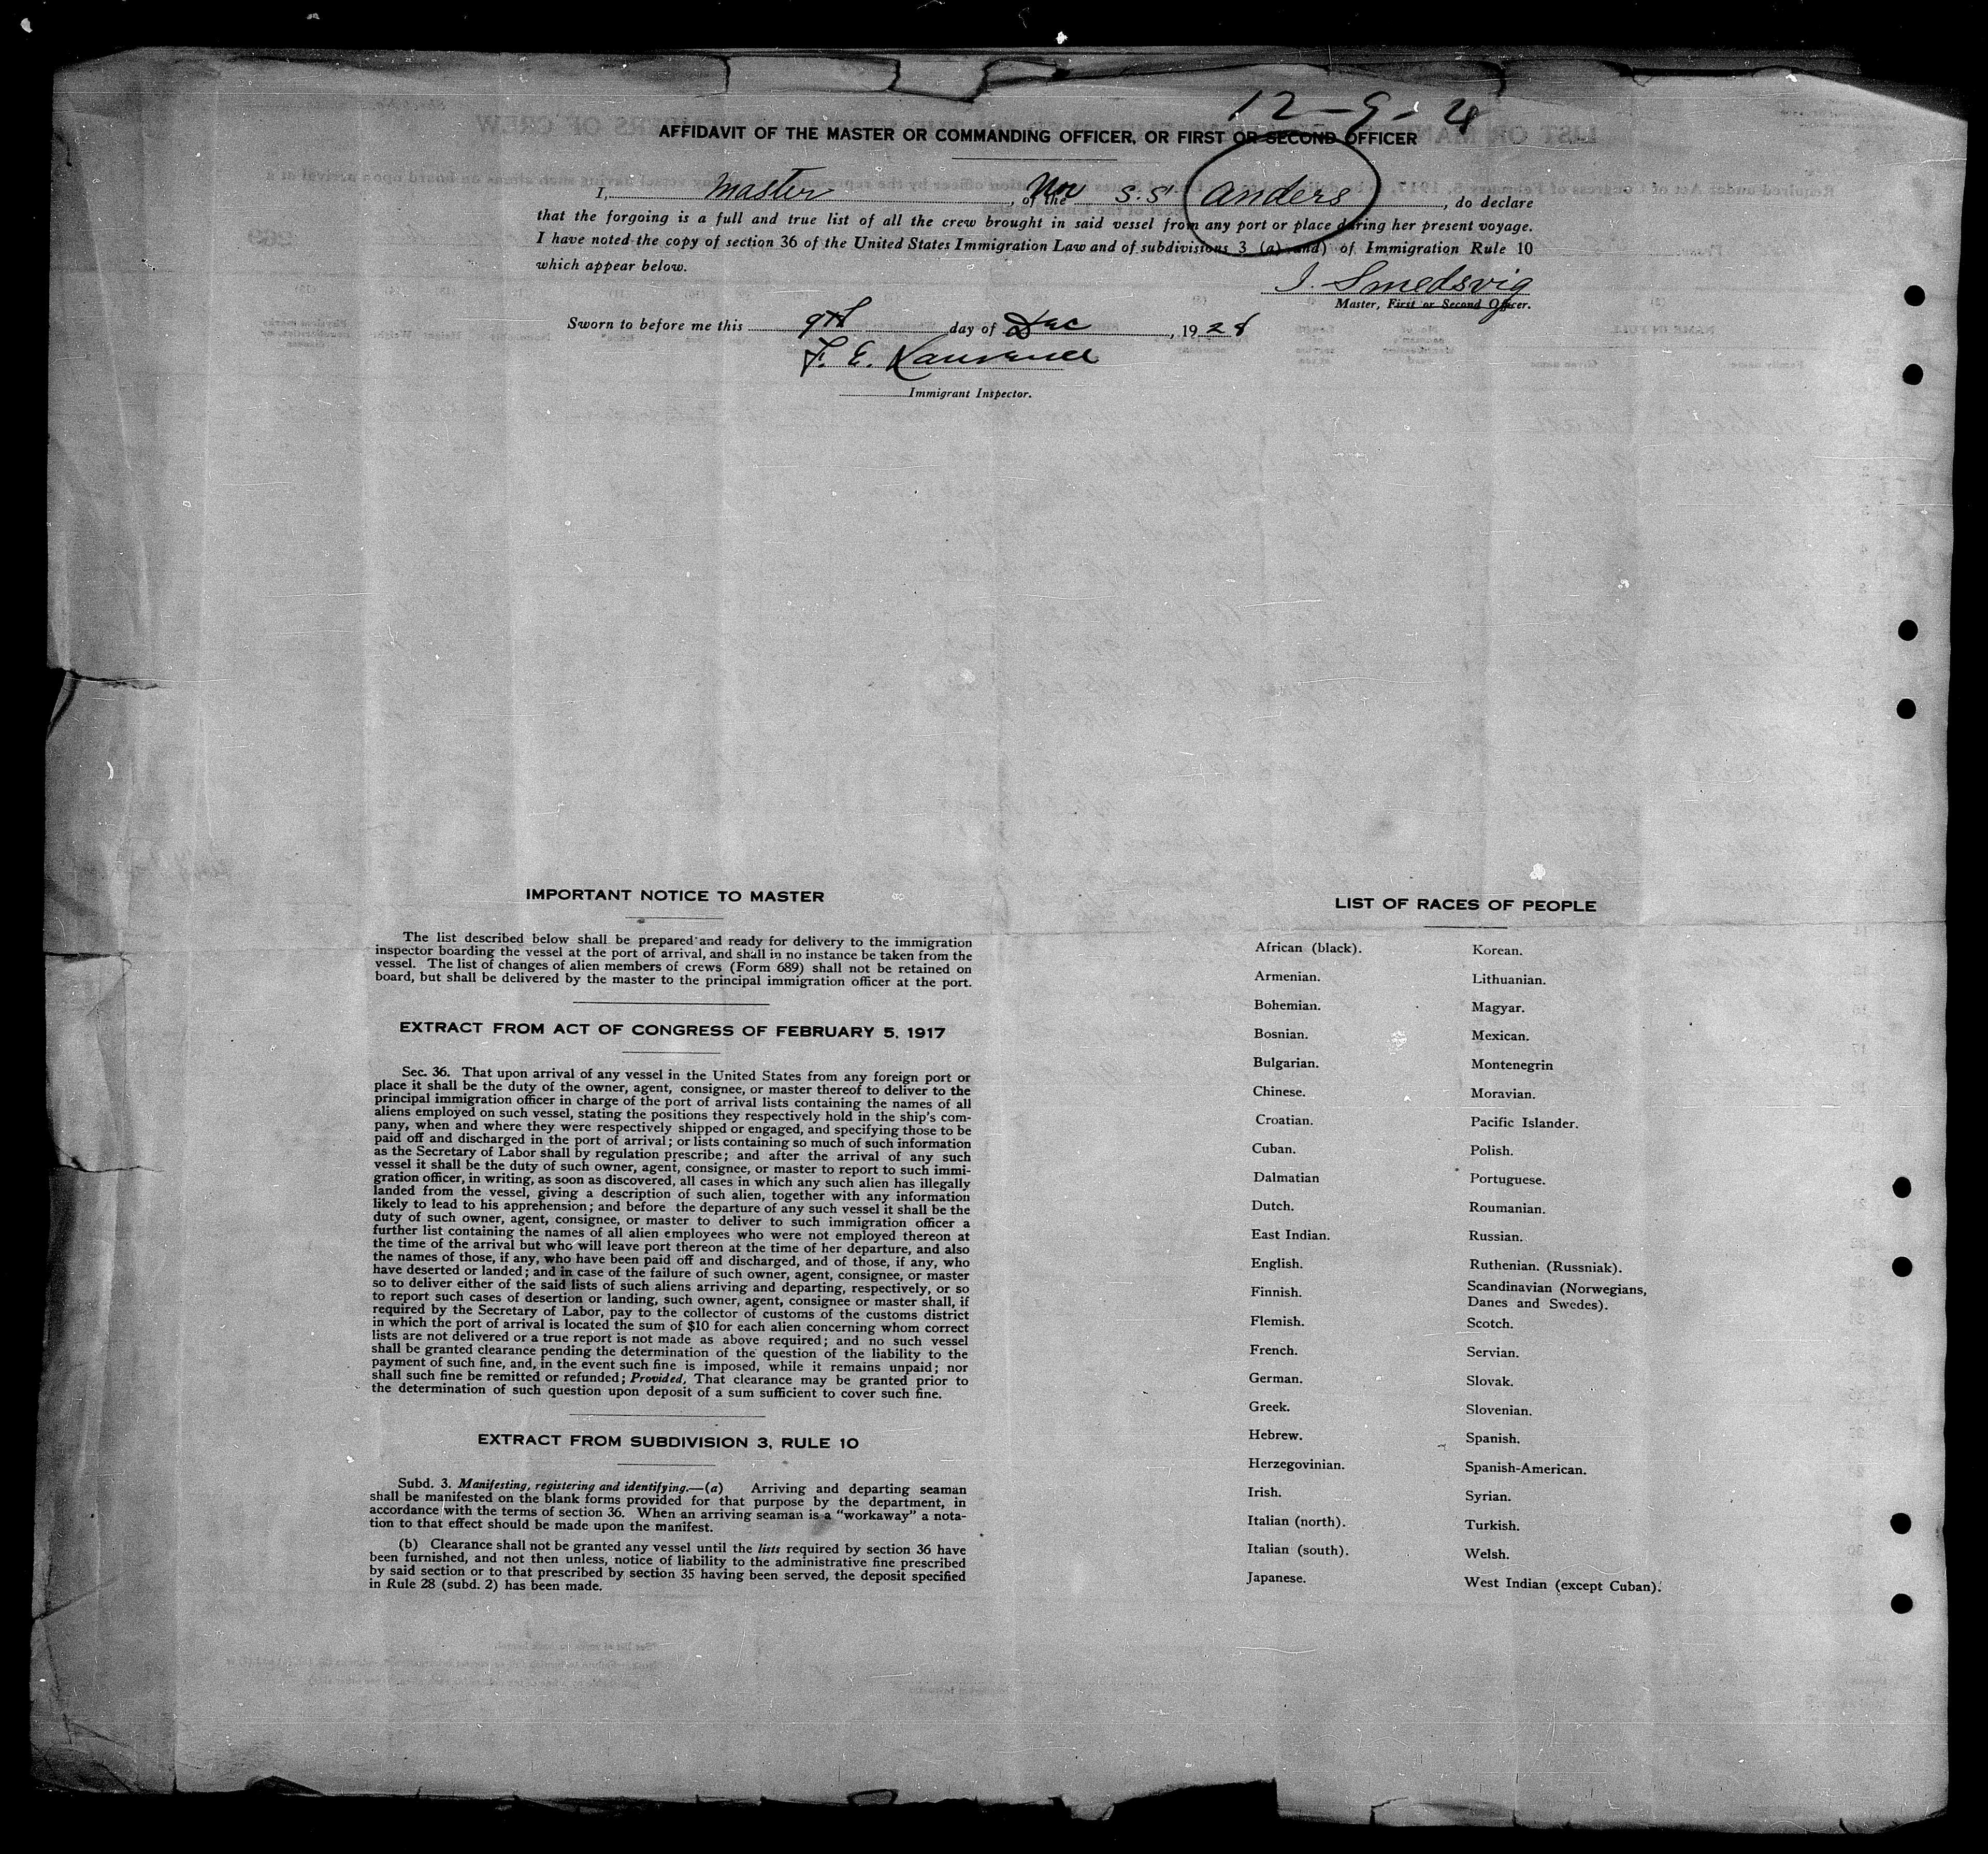 12-9-4
AFFIDAVIT OF THE MASTER OR COMMANDING OFFICER, OR FIRST OR SECOND OFFICER
I, Master, of the Nor S.S. Anders, do declare
that the forgoing is a full and true list of all the crew brought in said vessel from any port or place during her present voyage.
I have noted the copy of section 36 of the United States Immigration Law and of subdivisions 3 (a) and) of Immigration Rule 10
which appear below.
J. Smedsvig
Master, First or Second Officer.
Sworn to before me this 9th day of Dec, 1928
F. E.
Immigrant Inspector.
IMPORTANT NOTICE TO MASTER
The list described below shall be prepared and ready for delivery to the immigration
inspector boarding the vessel at the port of arrival, and shall in no instance be taken from the
vessel. The list of changes of alien members of crews (Form 689) shall not be retained on
board, but shall be delivered by the master to the principal immigration officer at the port.
EXTRACT FROM ACT OF CONGRESS OF FEBRUARY 5, 1917
Sec. 36. That upon arrival of any vessel in the United States from any foreign port or
place it shall be the duty of the owner, agent, consignee, or master thereof to deliver to the
principal immigration officer in charge of the port of arrival lists containing the names of all
aliens employed on such vessel, stating the positions they respectively hold in the ship's com-
pany, when and where they were respectively shipped or engaged, and specifying those to be
paid off and discharged in the port of arrival; or lists containing so much of such information
as the Secretary of Labor shall by regulation prescribe; and after the arrival of any such
vessel it shall be the duty of such owner, agent, consignee, or master to report to such immi-
gration officer, in writing, as soon as discovered, all cases in which any such alien has illegally
landed from the vessel, giving a description of such alien, together with any information
likely to lead to his apprehension; and before the departure of any such vessel it shall be the
duty of such owner, agent, consignee, or master to deliver to such immigration officer a
further list containing the names of all alien employees who were not employed thereon at
the time of the arrival but who will leave port thereon at the time of her departure, and also
the names of those, if any, who have been paid off and discharged, and of those, if any, who
have deserted or landed; and in case of the failure of such owner, agent, consignee, or master
so to deliver either of the said lists of such aliens arriving and departing, respectively, or so
to report such cases of desertion or landing, such owner, agent, consignee or master shall, if
required by the Secretary of Labor, pay to the collector of customs of the customs district
in which the port of arrival is located the sum of $10 for each alien concerning whom correct
lists are not delivered or a true report is not made as above required; and no such vessel
shall be granted clearance pending the determination of the question of the liability to the
payment of such fine, and, in the event such fine is imposed, while it remains unpaid; nor
shall such fine be remitted or refunded; Provided, That clearance may be granted prior to
the determination of such question upon deposit of a sum sufficient to cover such fine.
EXTRACT FROM SUBDIVISION 3, RULE 10
Subd. 3. Manifesting, registering and identifying.—(a) Arriving and departing seaman
shall be manifested on the blank forms provided for that purpose by the department, in
accordance with the terms of section 36. When an arriving seaman is a "workaway" a nota-
tion to that effect should be made upon the manifest.
(b) Clearance shall not be granted any vessel until the lists required by section 36 have
been furnished, and not then unless, notice of liability to the administrative fine prescribed
by said section or to that prescribed by section 35 having been served, the deposit specified
in Rule 28 (subd. 2) has been made.
LIST OF RACES OF PEOPLE
African (black).
Armenian.
Bohemian.
Bosnian.
Bulgarian.
Chinese.
Croatian.
Cuban.
Dalmatian
Dutch.
East Indian.
English.
Finnish.
Flemish.
French.
German.
Greek.
Hebrew.
Herzegovinian.
Irish.
Italian (north).
Italian (south).
Japanese.
Korean.
Lithuanian.
Magyar.
Mexican.
Montenegrin
Moravian.
Pacific Islander.
Polish.
Portuguese.
Roumanian.
Russian.
Ruthenian. (Russniak).
Scandinavian (Norwegians,
Danes and Swedes).
Scotch.
Servian.
Slovak.
Slovenian.
Spanish.
Spanish-American.
Syrian.
Turkish.
Welsh.
West Indian (except Cuban).